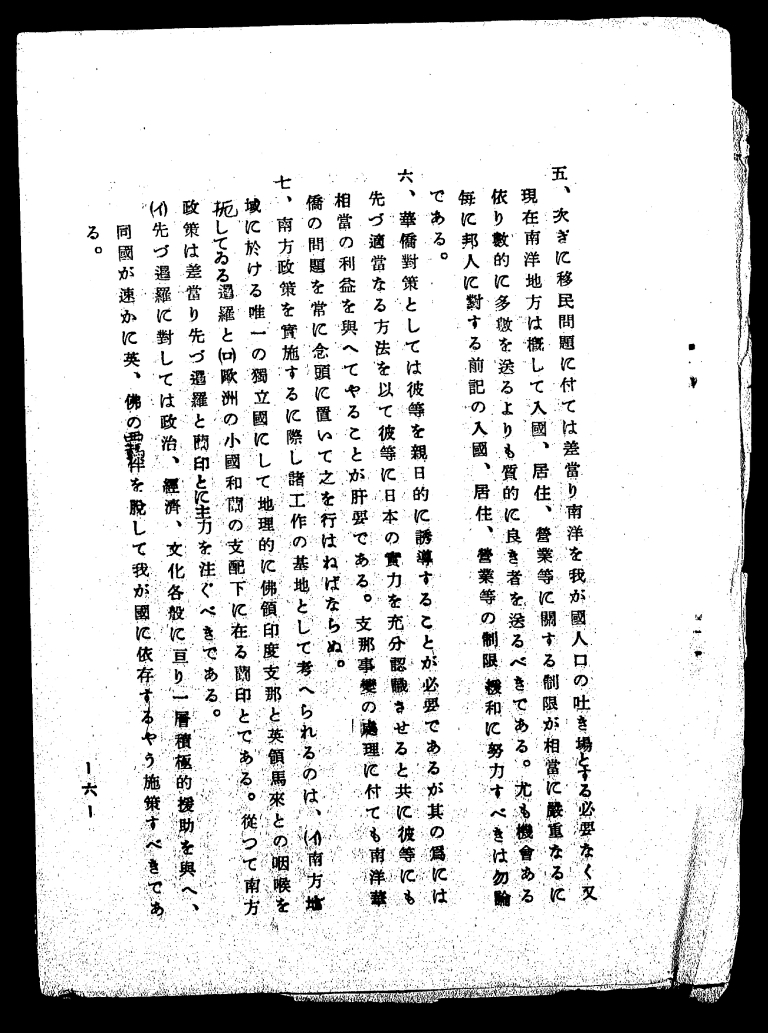 五、次ぎに移民問題に付ては差當り南洋を我が國人口の吐き場とする必要なく又
現在南洋地方は概して入國、居住、營業等に關する制限が相當に嚴重なるに
依り數的に多數を送るよりも質的に良き者を送るべきである。尤も機會ある
每に邦人に對する前記の入國、居住、營業等の制限緩和に努力すべきは勿論
である。
六、華僑對策としては彼等を親日的に誘導することが必要であるが其の爲には
先づ適當なる方法を以て彼等に日本の實力を充分認識させると共に彼等にも
相當の利益を與へてやることが肝要である。支那事變の處理に付ても南洋華
僑の問題を常に念頭に置いて之を行はねばならぬ。
七、南方政策を實施するに際し諸工作の基地として考へられるのは、(イ)南方地
域に於ける唯一の獨立國にして地理的に佛領印度支那と英領馬來との咽喉を
扼してゐる暹羅と(ロ)歐洲の小國和蘭の支配下に在る蘭印とである。從つて南方
政策は差當り先づ暹羅と蘭印とに主力を注ぐべきである。
(イ)先づ暹羅に對しては政治、經濟、文化各般に亘り一層積極的援助を與へ、
同國が速かに英、佛の羈絆を脫して我が國に依存するやう施策すべきであ
る。
-六-